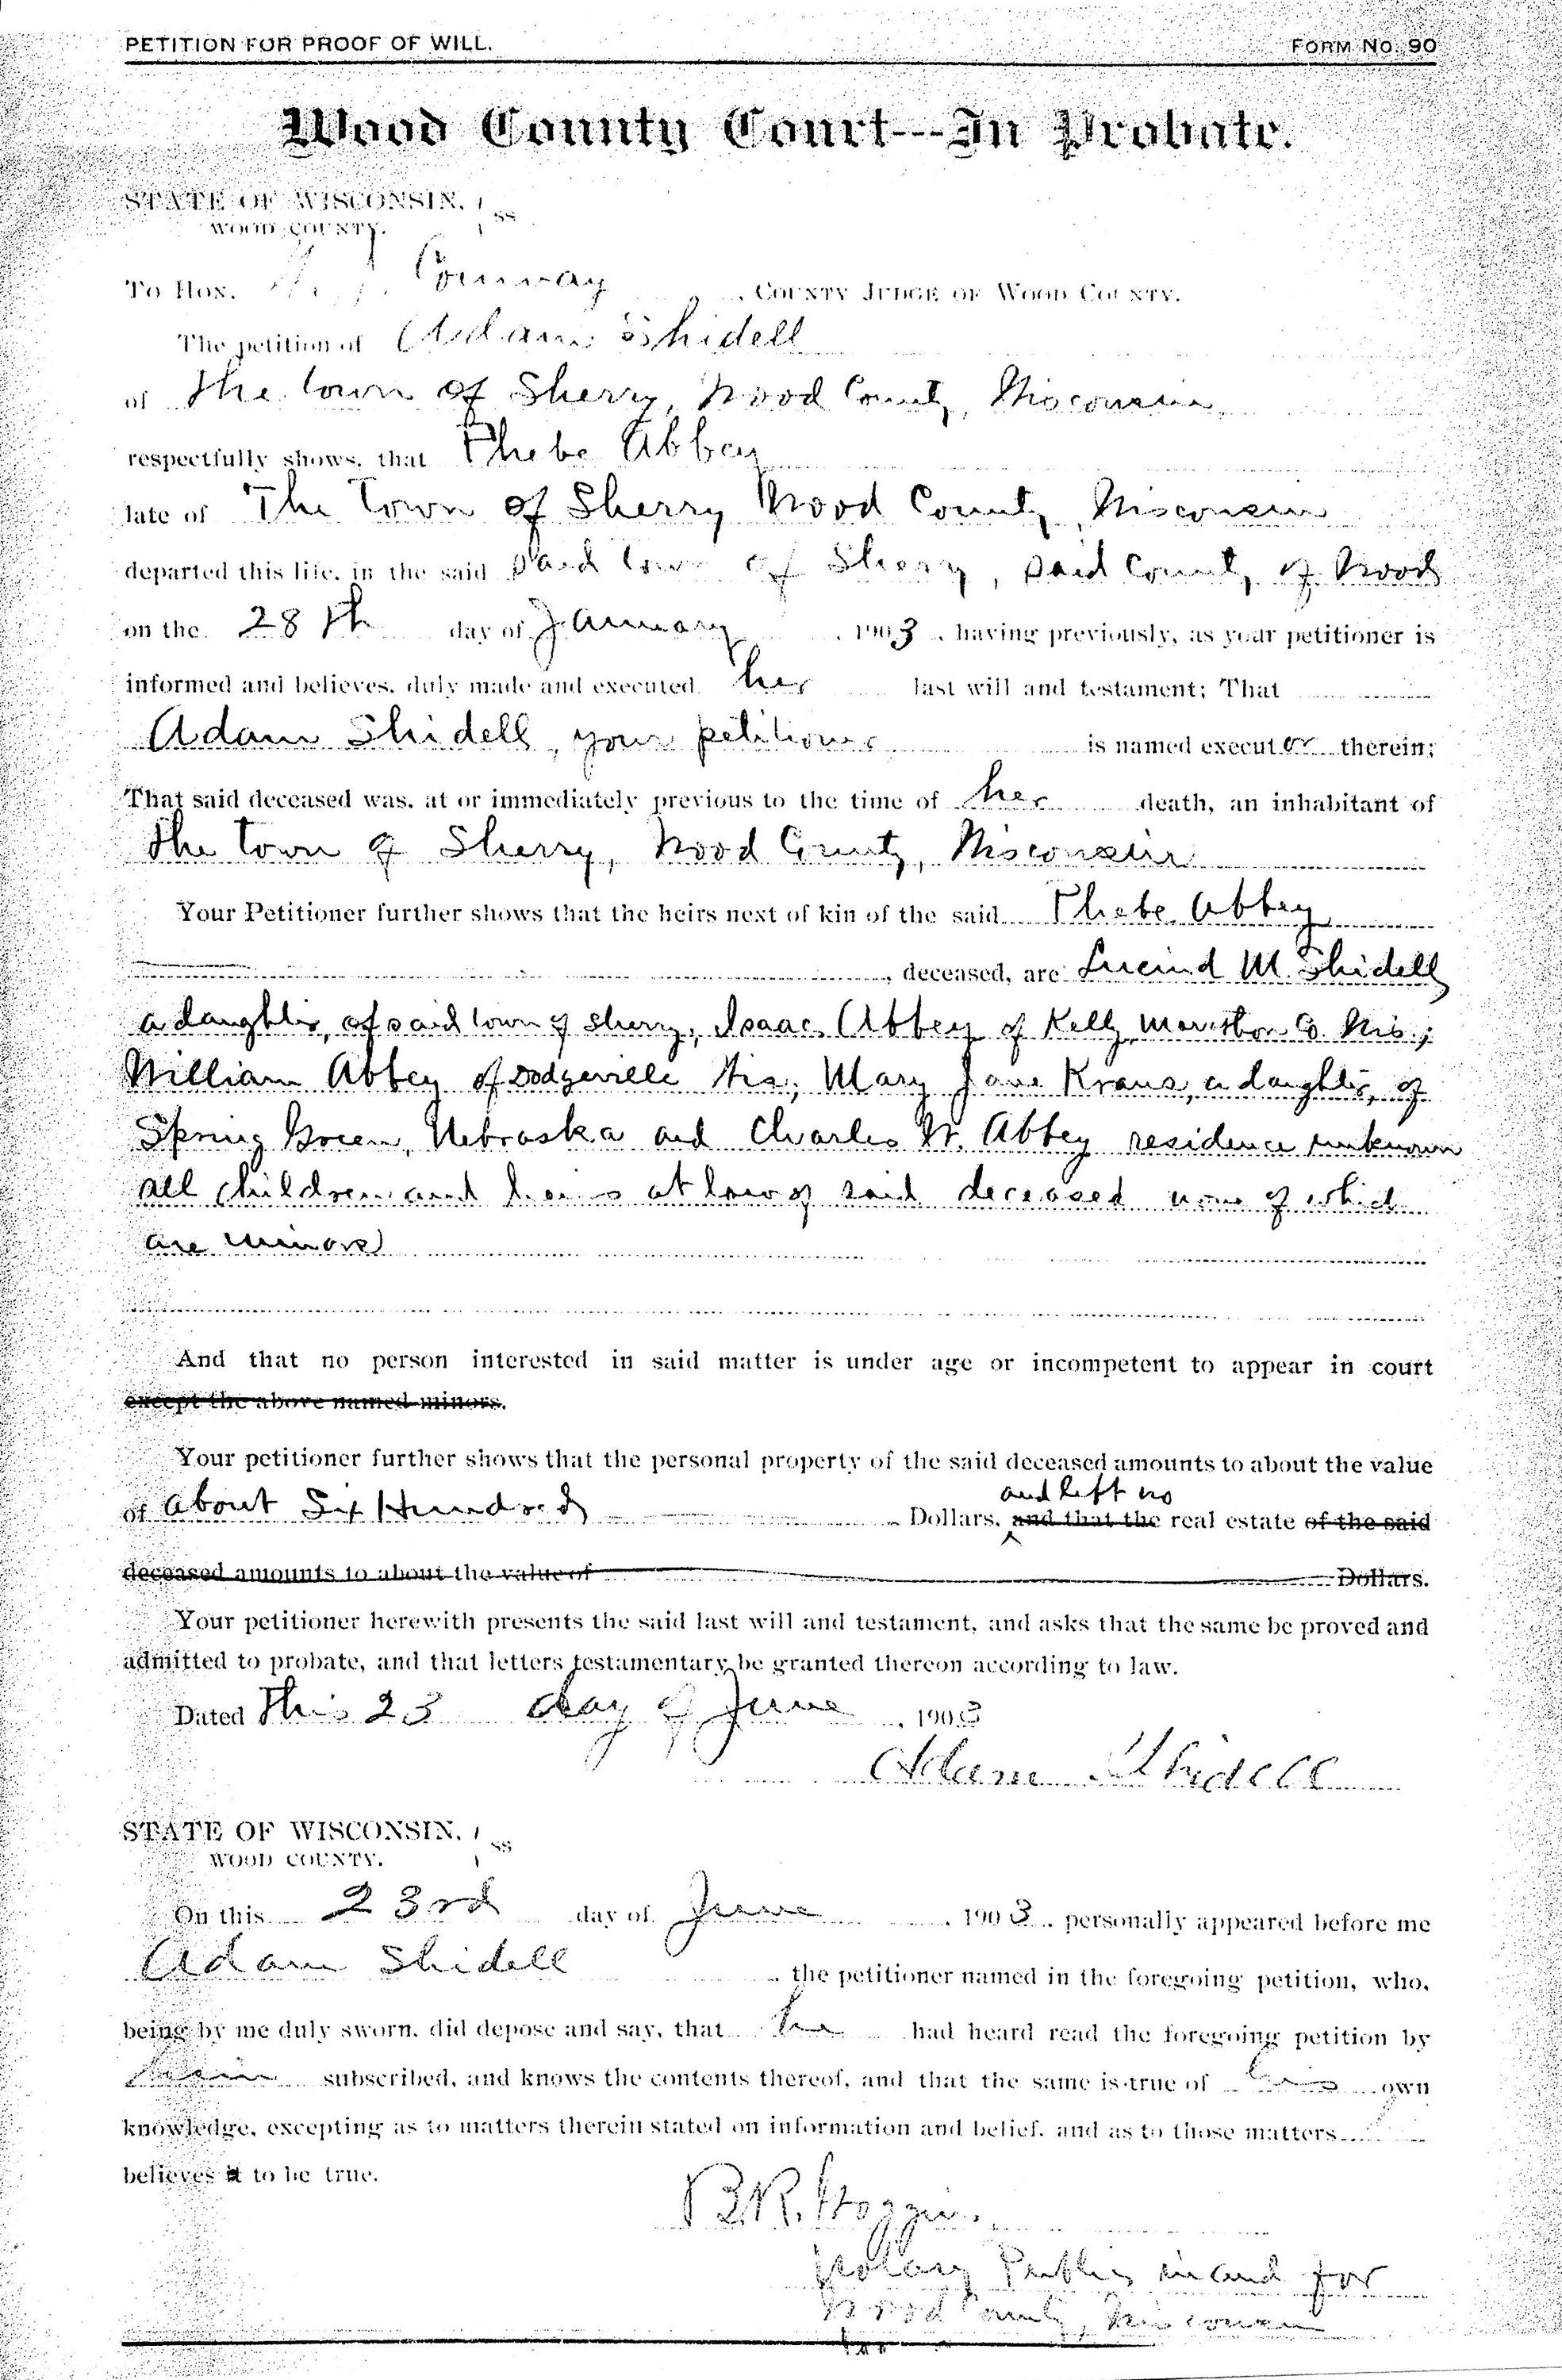 PETITION FOR PROOF OF WILL. FORM NO. 90
Wood County Court---In Probate.
STATE OF WISCONSIN, } SS
WOOD COUNTY.
TO HON. Conway, COUNTY JUDGE OF WOOD COUNTY.
The petition of Adam Shidell
of the town of Sherry, Wood County, Wisconsin
respectfully shows, that Phebe Abbey
late of The Town of Sherry Wood County, Wisconsin
departed this life, in the said said town of Sherry, said County of Wood
on the 28th day of January, 1903, having previously, as your petitioner is
informed and believes, duly made and executed her last will and testament; That
Adam Shidell, your petitioner is named executor therein;
That said deceased was, at or immediately previous to the time of her death, an inhabitant of
the town of Sherry, Wood County, Wisconsin
Your Petitioner further shows that the heirs next of kin of the said Phebe Abbey
, deceased, are Lucind M. Shidell
a daughter, of said town of Sherry, Isaac Abbey of Kelly Marathon Co. Wis.;
William Abbey of Dodgeville Wis; Mary Jane Kraus, a daughter, of
Spring Green, Nebraska and Charles W. Abbey residence unknown
all children and heirs at law of said deceased none of which
are minors
And that no person interested in said matter is under age or incompetent to appear in court
except the above named minors.
Your petitioner further shows that the personal property of the said deceased amounts to about the value
and left no
of about Six Hundred Dollars, and that the real estate of the said
deceased amounts to about the value of Dollars.
Your petitioner herewith presents the said last will and testament, and asks that the same be proved and
admitted to probate, and that letters testamentary be granted thereon according to law.
Dated This 23 day of June, 1903
Adam Shidell
STATE OF WISCONSIN, } SS
WOOD COUNTY.
On this 23rd day of June, 1903, personally appeared before me
Adam Shidell, the petitioner named in the foregoing petition, who,
being by me duly sworn, did depose and say, that he had heard read the foregoing petition by
him subscribed, and knows the contents thereof, and that the same is true of his own
knowledge, excepting as to matters therein stated on information and belief, and as to those matters
believes it to be true.
B.R. Goggins.
Notary Public in and for
Wood County, Wisconsin